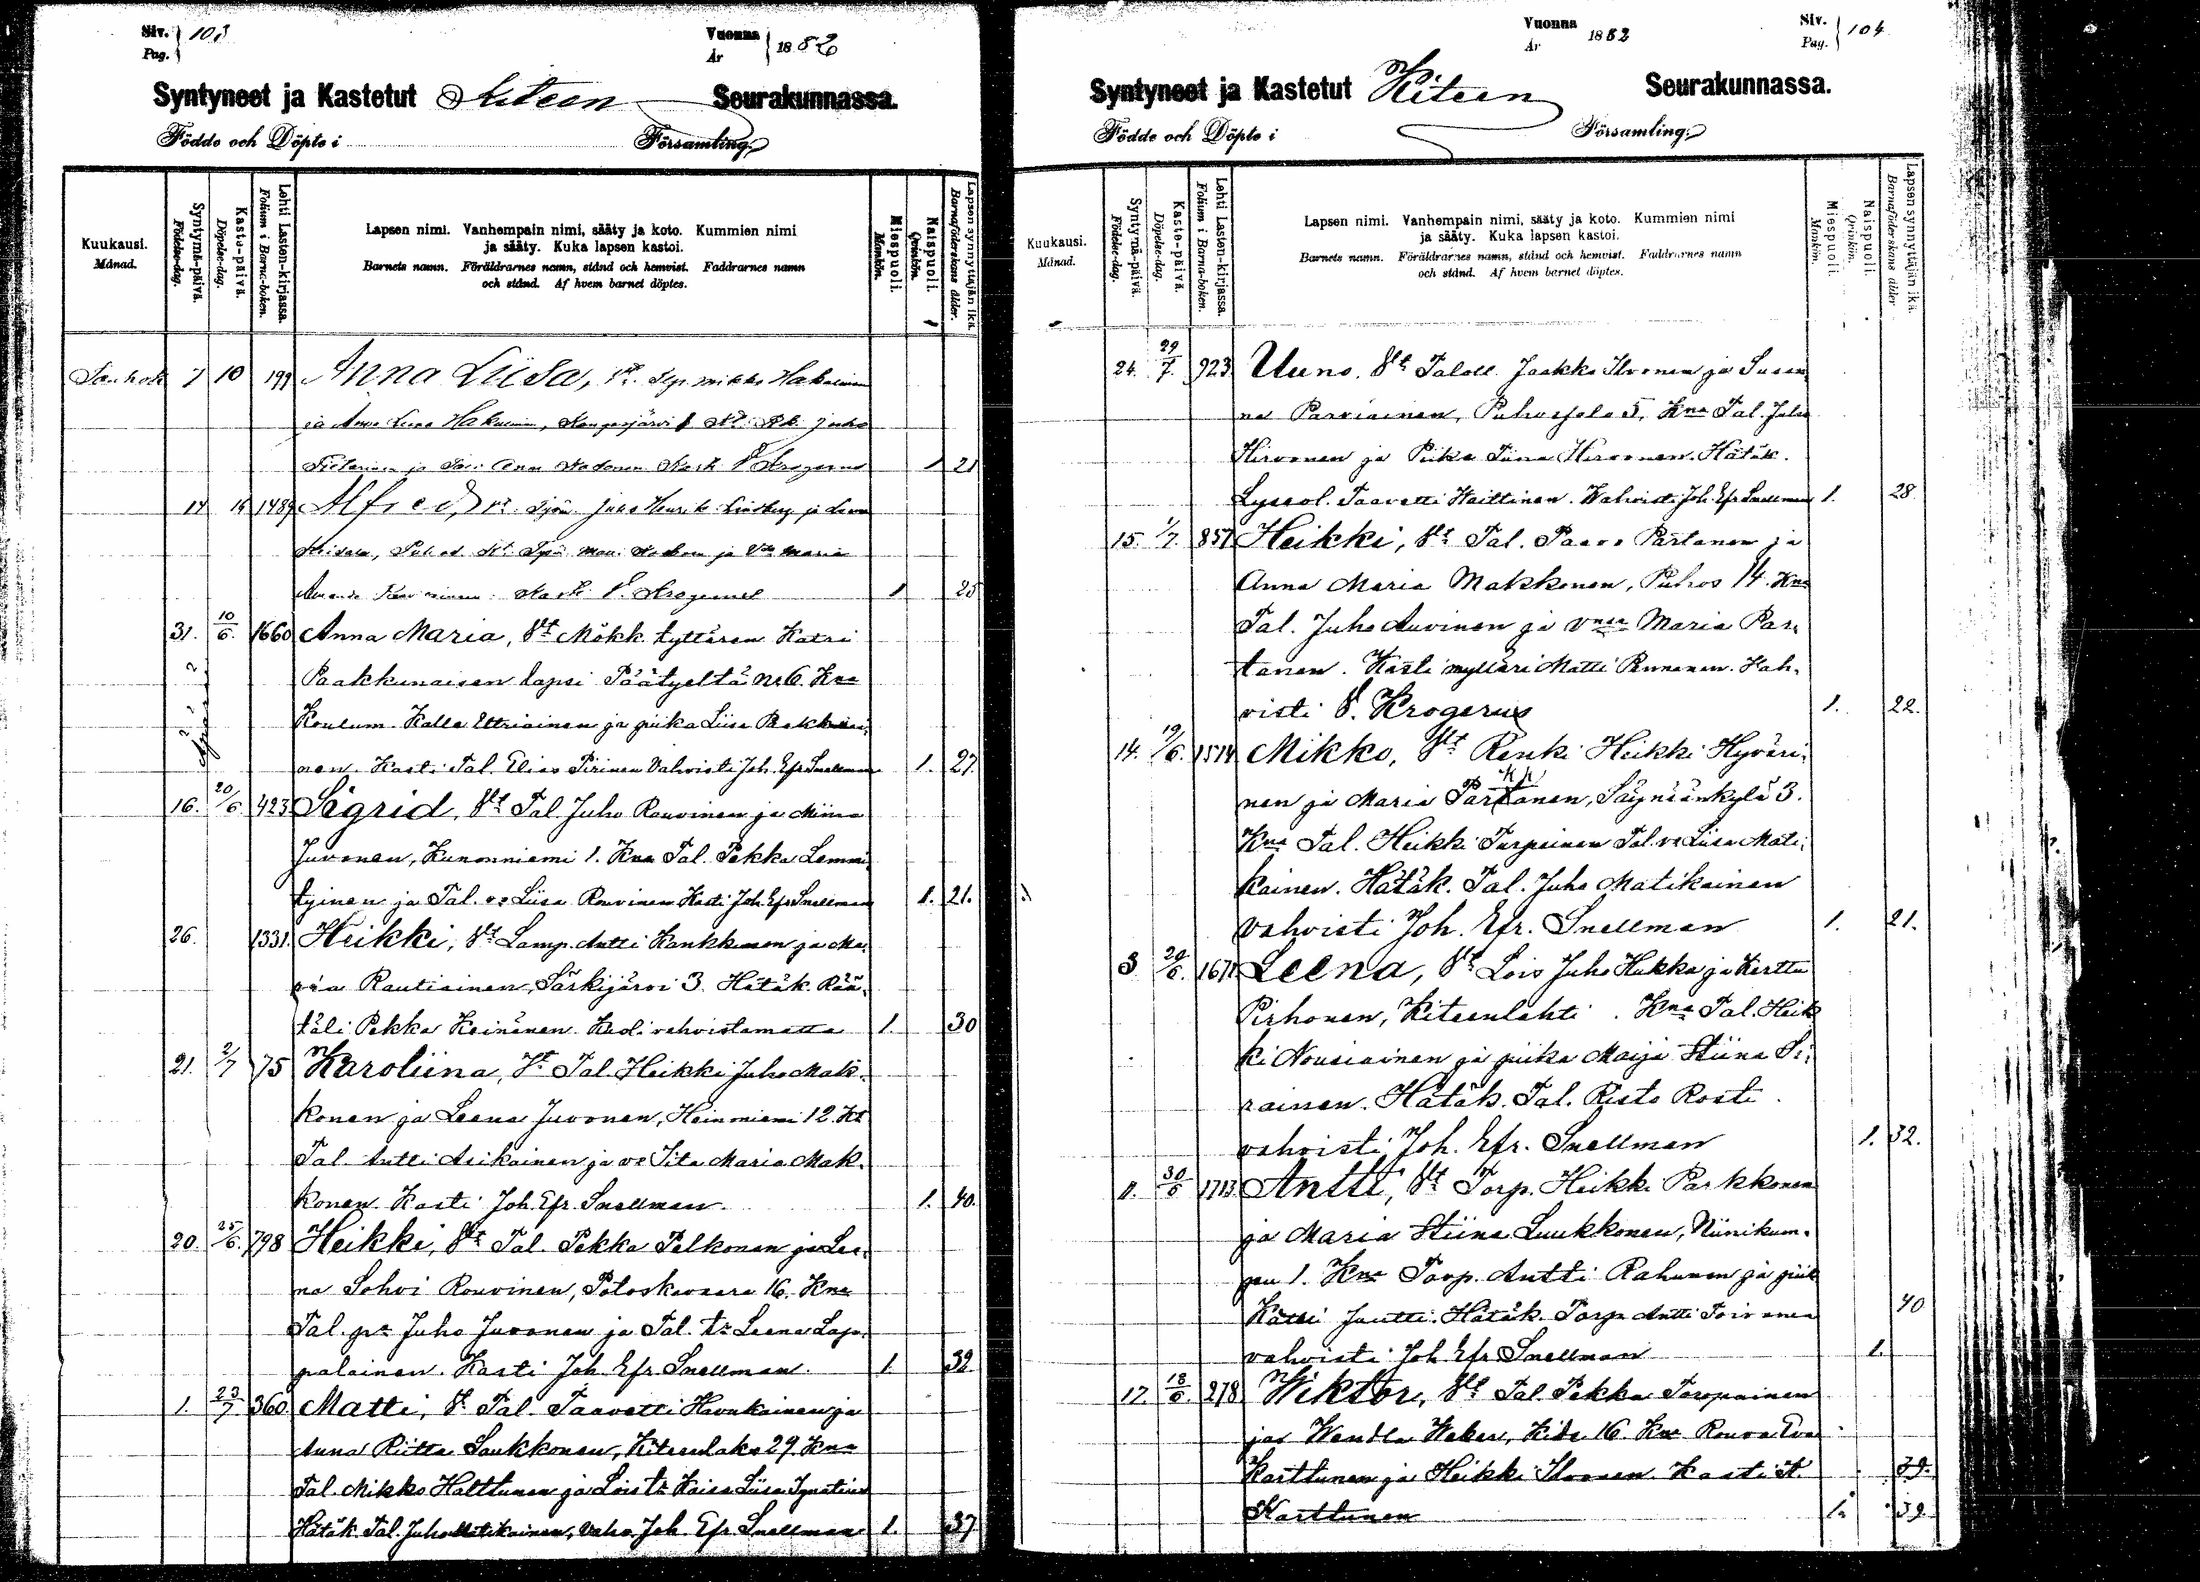 Siv. Pag. 103
Vuonna År 1882
Syntyneet ja Kastetut Kiteen Seurakunnassa.
Födde och Döpte i Församling.
Kuukausi. Månad.
Syntymä-päivä. Födelse-dag.
Kaste-päivä. Döpelse-dag.
Lehti Lasten-kirjassa. Folium i Barna-boken.
Lapsen nimi. Vanhempain nimi, sääty ja koto. Kummien nimi
ja sääty. Kuka lapsen kastoi.
Barnets namn. Föräldrarnes namn, stånd och hemvist. Faddrarnes namn
och stånd. Af hvem barnet döptes.
Miespuoli. Mankön.
Naispuoli. Qvinkön.
Lapsen synnyttäjän ikä. Barnaföderskans ålder.
7 10 199 Anna Liisa, Mikko Hakulinen
ja Anna Hakulinen, Kangasjärvi Juho
ja Anna Kast. Krogerus 1 21
14 1489 Alfred, Juho Henrik Lindberg ja
ja Maria
Kasti Krogerus 1 25
31. 10/6. 1660 Anna Maria, Vt Mökk. tyttären Katri
Paakkunaisen lapsi Päätyeltä No 6. Kna
Koulum. Kalle Ettriainen ja piika Liisa Paakkunai-
nen. Kasti Tal. Elias Pirinen Vahvisti Joh. Efr. Snellman 1. 27.
16. 20/6. 423 Sigrid, Vt Tal. Juho Rouvinen ja Miina
Juvonen, Kunonniemi 1. Kna Tal. Pekka Lemmi-
tyinen ja Tal. v:o Liisa Rouvinen Kasti Joh. Efr. Snellman 1. 21.
26. 1331. Heikki, Vt Lamp. Antti Kankkunen ja Ma-
ria Rautiainen, Särkijärvi 3. Hätäk. Rää-
täli Pekka Keinänen. Kuoli vahvistamatta 1. 30
21. 2/7 75 Karoliina, Vt Tal. Heikki Juho Mak-
konen ja Leena Juvonen, Heinoniemi 12. Kt
Tal. Antti Asikainen ja vo Iita Maria Mak-
konen. Kasti Joh. Efr. Snellman. 1. 40.
20. 25/6. 798 Heikki, Vt Tal. Pekka Pelkonen ja Lee-
na Sohvi Rouvinen, Potoskavaara 16. Kna
Tal. pa Juho Juvonen ja Tal. tr Leena Lap-
palainen. Kasti Joh. Efr. Snellman. 1. 32
1. 23/7. 360 Matti, V. Tal. Taavetti Havukainen ja
Anna Riitta Laukkonen, Kiteenlaks 29. Kna
Tal. Mikko Halttunen ja Lois tr Kaisa Liisa Ignatius
Hätäk. Tal. Juho Matikainen, Vahv. Joh. Efr. Snellman 1. 37
Siv. Pag. 104
Vuonna År 1882
Syntyneet ja Kastetut Kiteen Seurakunnassa.
Födde och Döpte i Församling.
Kuukausi. Månad.
Syntymä-päivä. Födelse-dag.
Kaste-päivä. Döpelse-dag.
Lehti Lasten-kirjassa. Folium i Barna-boken.
Lapsen nimi. Vanhempain nimi, sääty ja koto. Kummien nimi
ja sääty. Kuka lapsen kastoi.
Barnets namn. Föräldrarnes namn, stånd och hemvist. Faddrarnes namn
och stånd. Af hvem barnet döptes.
Miespuoli. Mankön.
Naispuoli. Qvinkön.
Lapsen synnyttäjän ikä. Barnaföderskans ålder.
24. 29/7. 923 Uuno. Vt Taloll. Jaakko Ilvonen ja Susan-
na Parviainen, Puhossalo 5, Kna Tal. Juho
Hirvonen ja Piika Tiina Hirvonen. Hätäk.
Taavetti Haittinen. Vahvisti Joh. Efr. Snellman 1. 28.
15. 1/7. 857 Heikki, Vt Tal. Paavo Partanen ja
Anna Maria Makkonen, Puhos 14. Kna
Tal. Juho Auvinen ja vnsa Maria Par-
tanen. Kasti mylläri Matti Pennanen. Vah-
visti V. Krogerus 1. 22.
14. 19/6. 1514 Mikko, Vt Renki Heikki Hyväri-
nen ja Maria Partanen, Säyniänkylä 3.
Kna Tal. Heikki Turpeinen Tal. vo Liisa Mati-
kainen. Hätäk. Tal. Juho Matikainen
vahvisti Joh. Efr. Snellman 1. 21.
3 29/6. 1671 Leena, Vt Lois Juho Hukka ja Kerttu
Pirhonen, Kiteenlahti. Kna Tal. Heik-
ki Nousiainen ja piika Maija Stiina Si-
rainen. Hätäk. Tal. Risto Rosti.
vahvisti Joh. Efr. Snellman 1. 32.
11. 30/6 1713 Antti, Vt Torp. Heikki Parkkonen
ja Maria Stiina Luukkonen, Niinikum-
pu 1. Kna Torp. Antti Rahunen ja piik.
Katri Jantti. Hätäk. Torp. Antti Toivanen 40
vahvisti Joh Efr. Snellman 1.
17. 18/6. 278 Wiktor, Vt Tal. Pekka Toropainen
ja Wendla Weber, Kide 16. Kna Rouva Eva
Karttunen ja Heikki Ilvonen. Kasti A. 39.
Karttunen 1. 39.